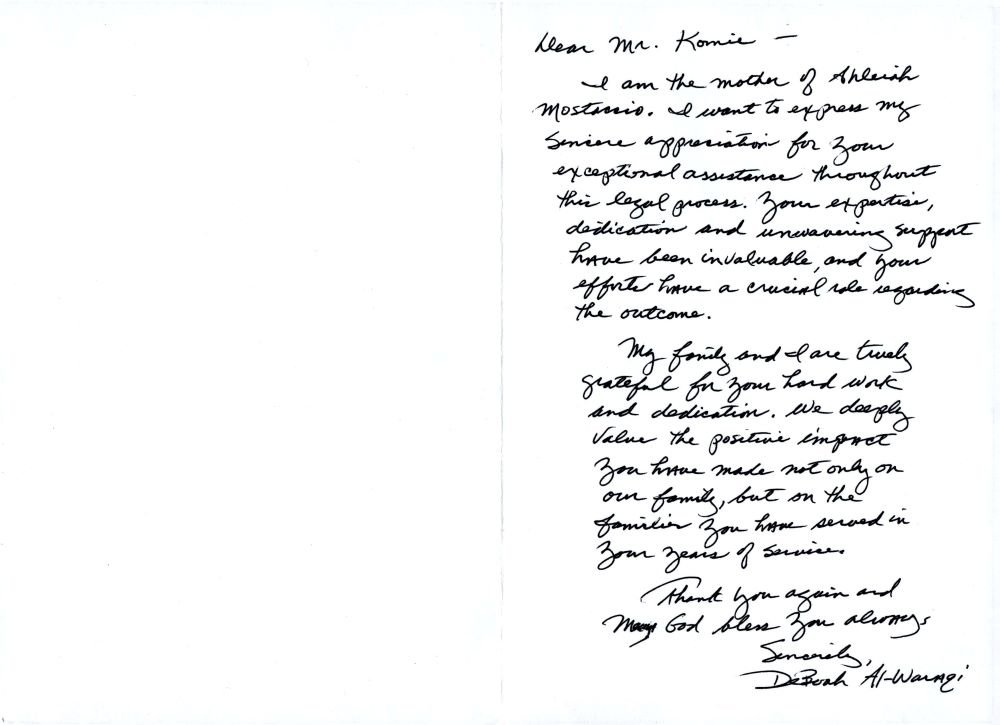 Dear Mr. Komie —
I am the mother of
Mostaccio. I want to express my
sincere appreciation for your
exceptional assistance throughout
this legal process. Your expertise,
dedication and unwavering support
have been invaluable, and your
efforts have a crucial role regarding
the outcome.
My family and I are truely
grateful for your hard work
and dedication. We deeply
value the positive impact
you have made not only on
our family, but on the
families you have served in
your years of service.
Thank you again and
May God bless you always
Sincerely,
DeBorah Al-Waraqi